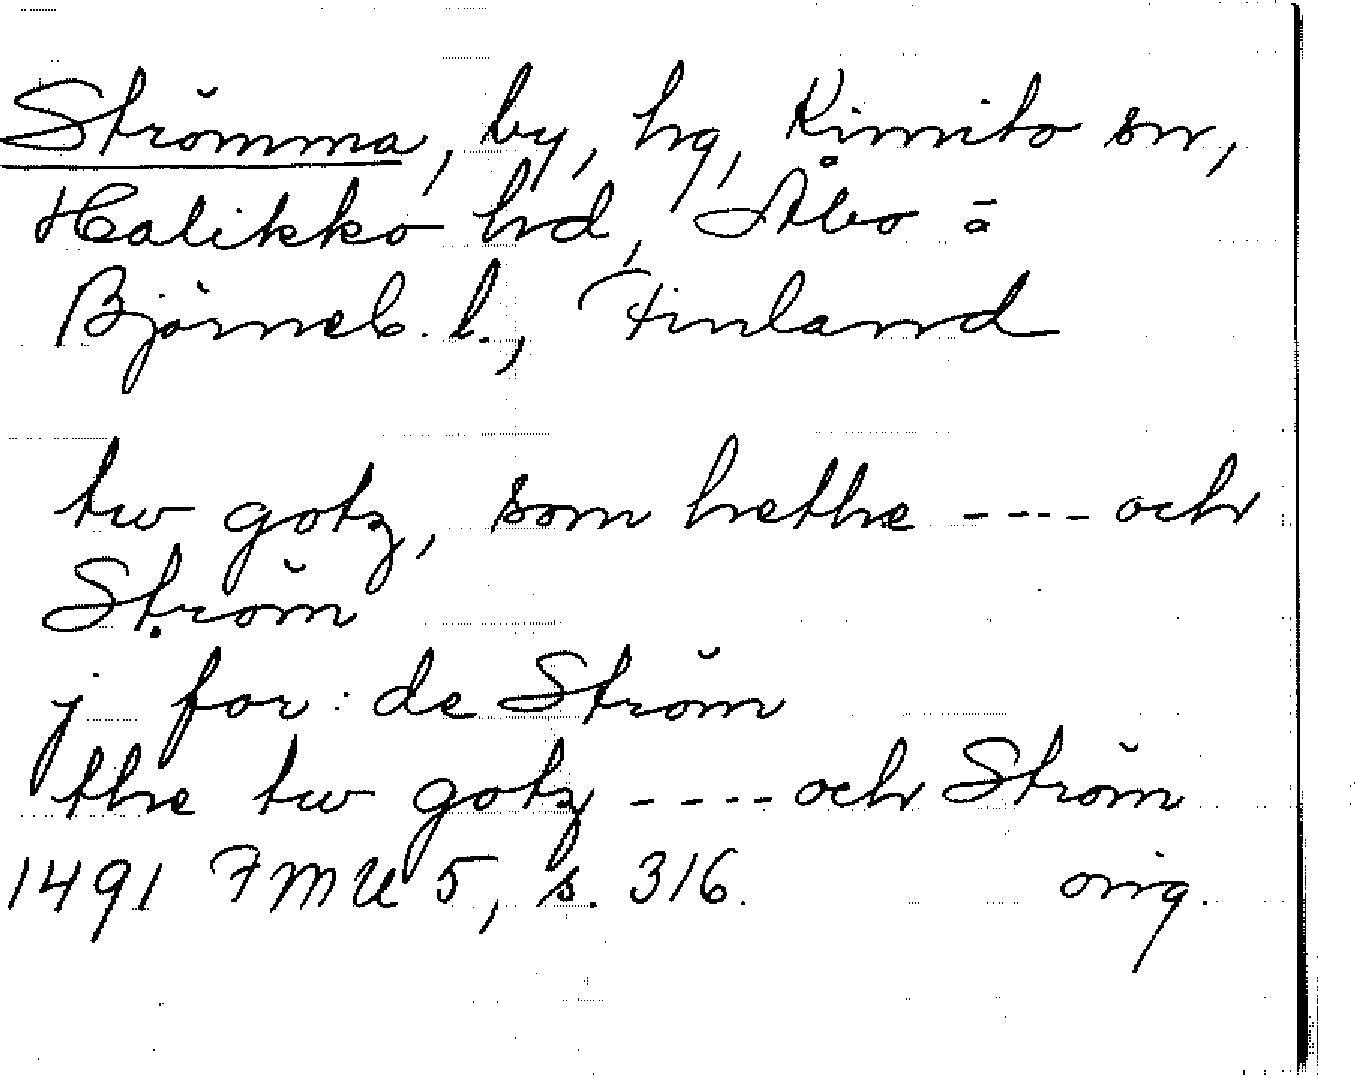 Strömma, by, hg, Kimito sn,
Halikko hd, Åbo o
Björneb. l., Finland
tw gotz, som hethe ---- och
Ström
j for: de Ström
the tw gotz ---- och Ström
1491 FMU 5, s. 316. orig.